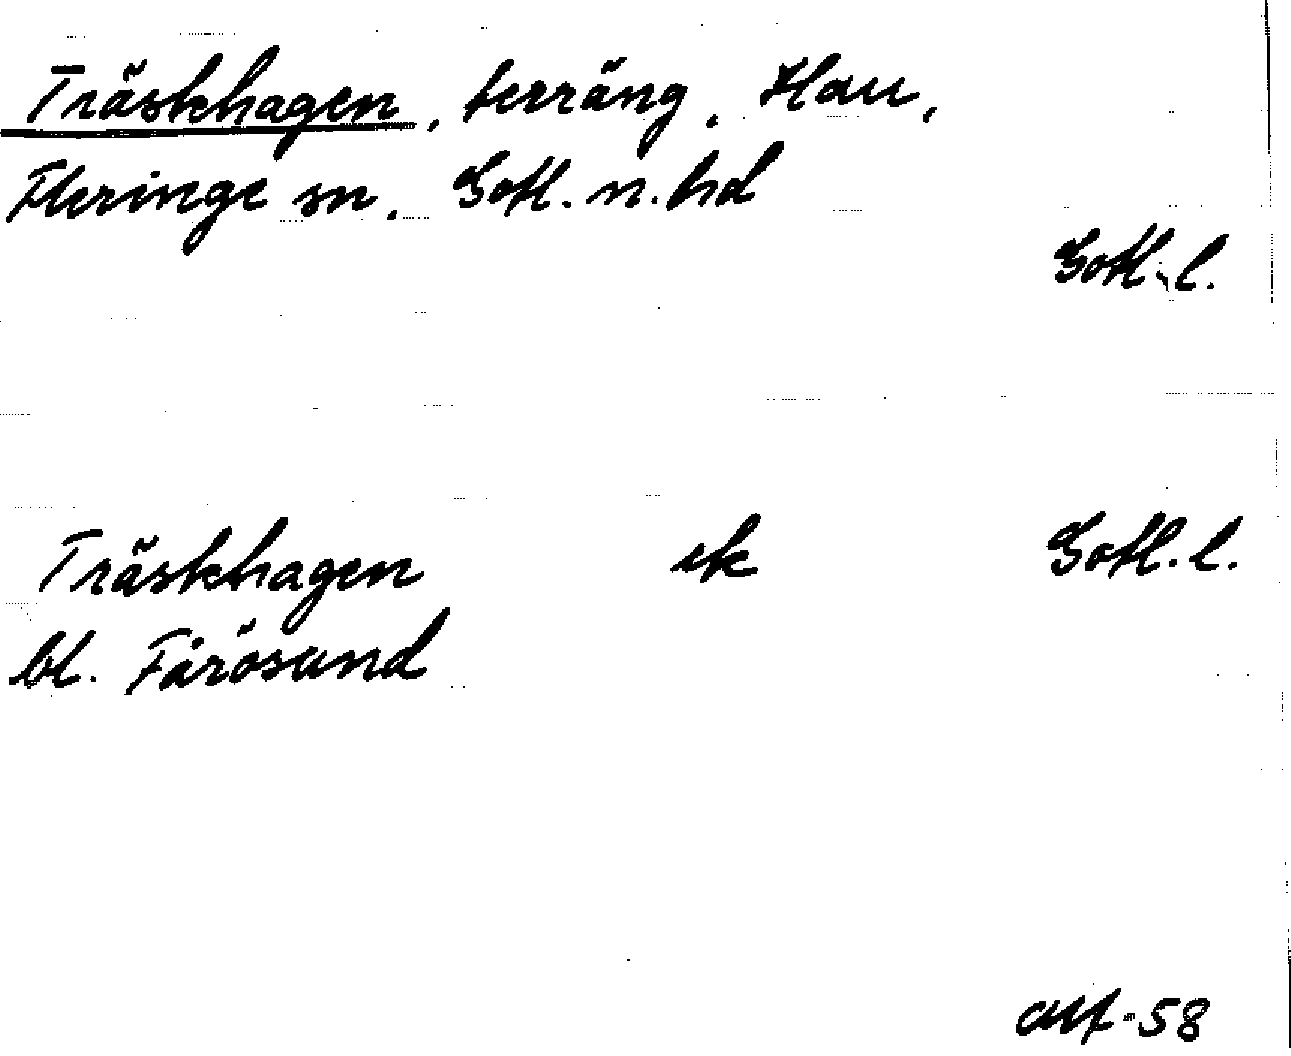 Träskhagen, terräng, Hau,
Fleringe sn. Gotl. n. hd
Gotl. l.
Träskhagen ek Gotl. l.
bl. Fårösund
-58